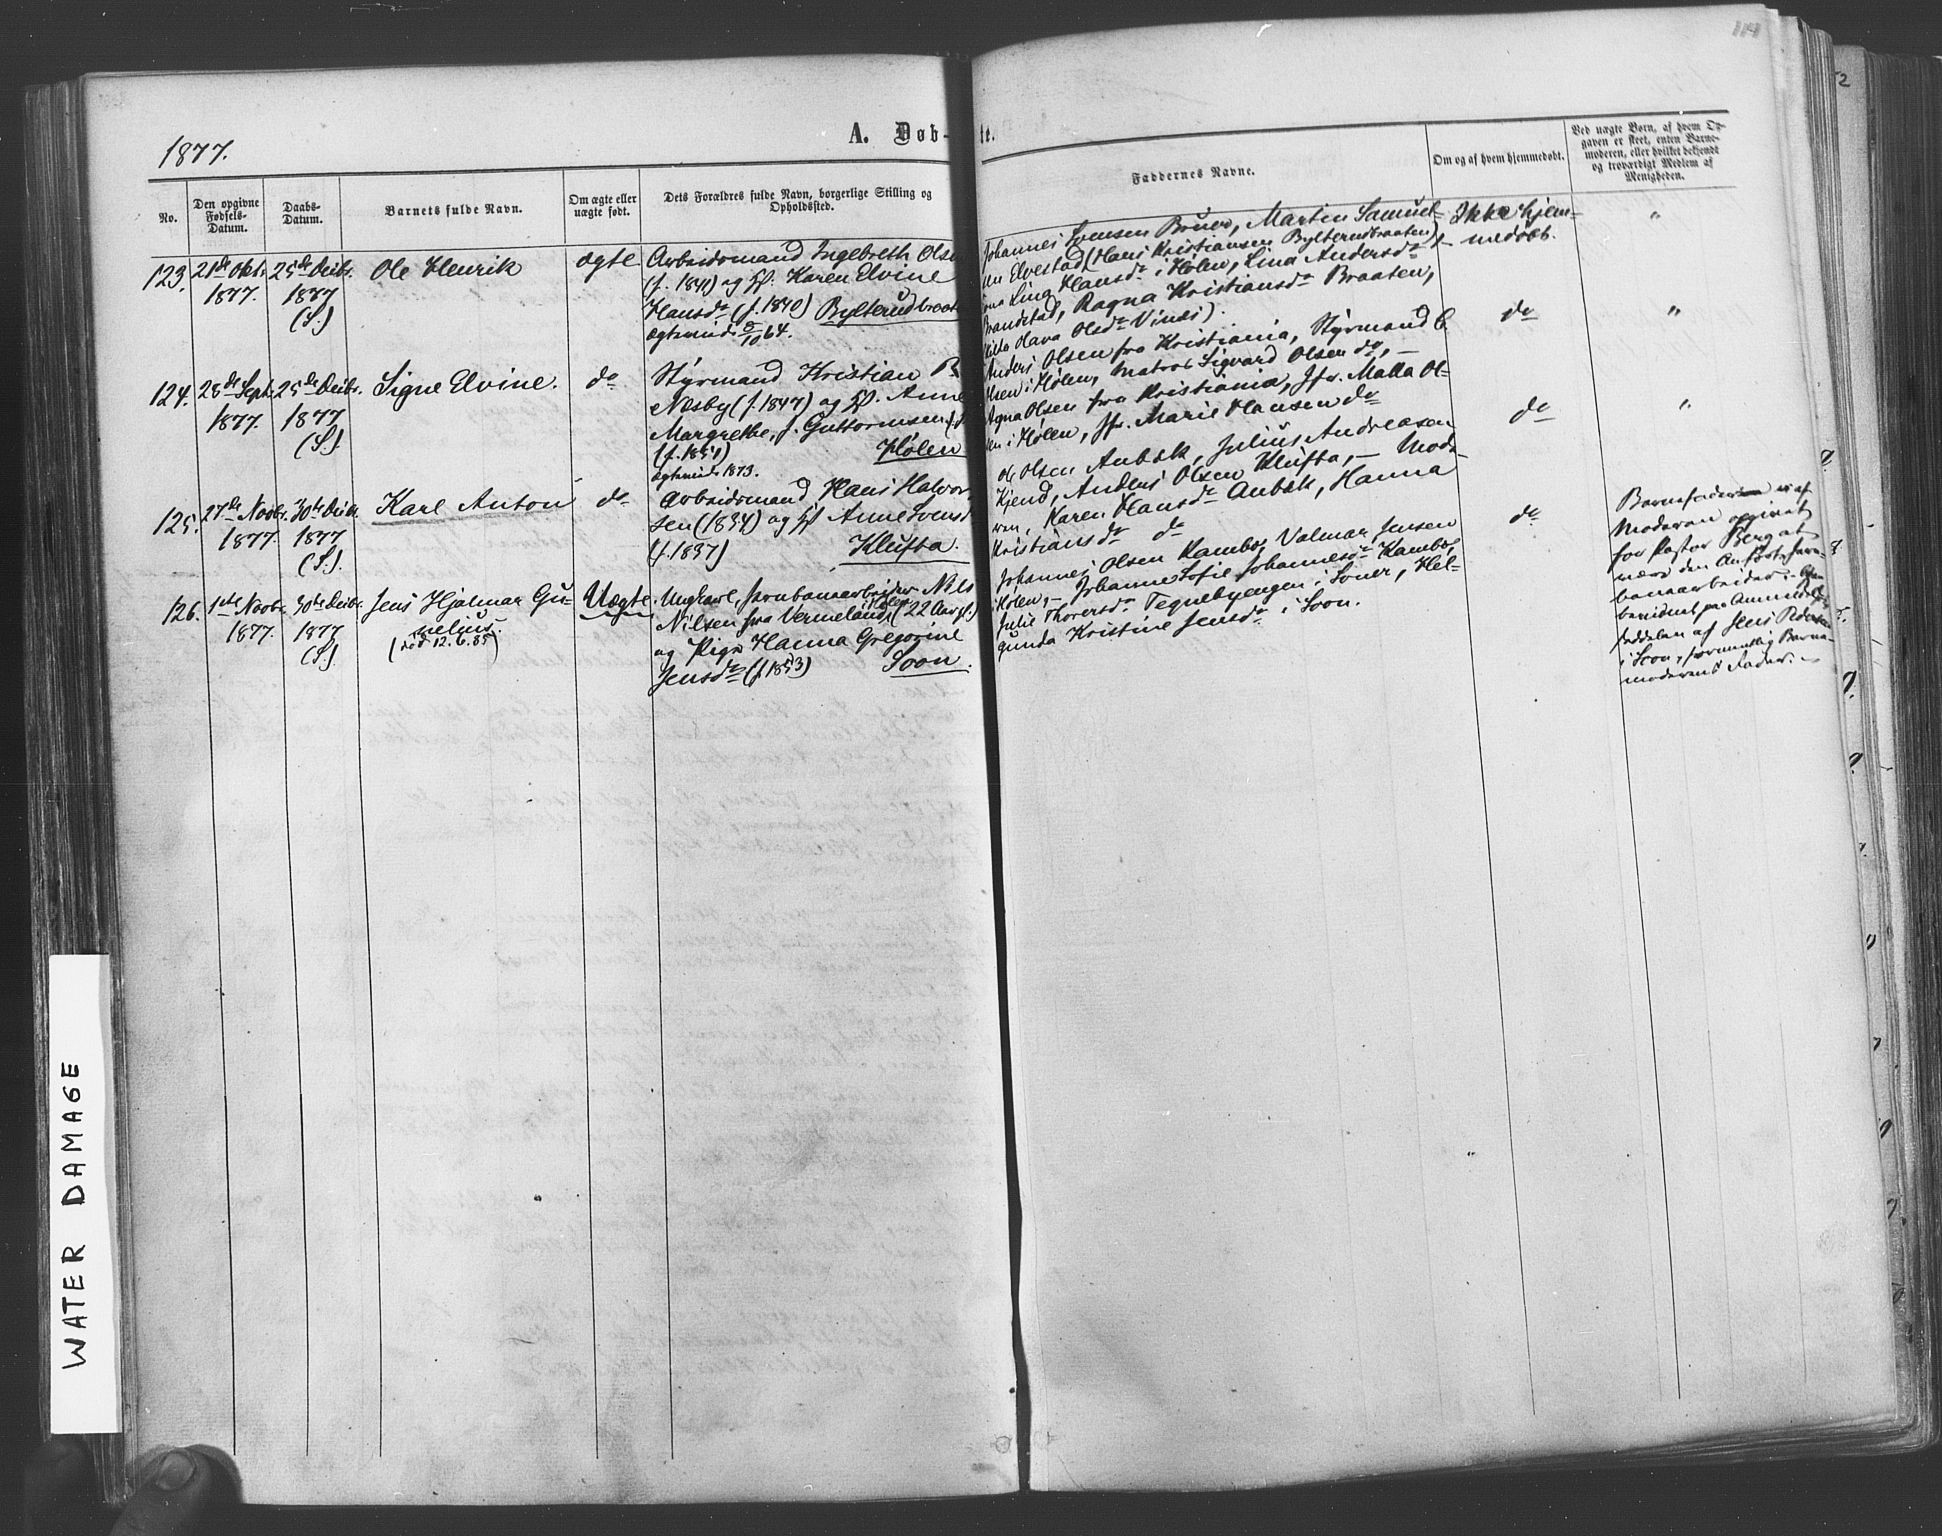 114
2
1877.
A. Døb-
te.
No.
Den opgivne Fødsels-Datum.
Daabs-Datum.
Barnets fulde Navn.
Om ægte eller uægte født.
Dets Forældres fulde Navn, borgerlige Stilling og Opholdssted.
Faddernes Navne.
Om og af hvem hjemmedøbt.
Ved uægte Børn, af hvem Op-
gaven er skeet, enten Barne-
moderen, eller hvilket bekjendt
og troværdigt Medlem af
Menigheden.
123.
21de Oktr.
1877.
25de Decbr.
1877
(S.)
Ole Henrik
ægte
Arbeidsmand Ingebreth Olsen
(f. 1841) og H. Karen Elvine
Hansdr (f. 1840) Bylterudbraaten
Ægteviede 64.
Johannes Svensen Bruer, Martin Samuel-
sen Elvestad, (Hans Kristiansen Bylterudbraaten)
Lina Hansdr i Hølen, Lina Andersdr
Brandstad, Ragna Kristiansdr Braaten,
Olava Olsdr Vinæs).
Ikke hjem-
medøbt.
"
124.
28de Septr.
1877.
25de Decbr.
1877
(S.)
Signe Elvine.
do
Styrmand Kristian B.
Næsby (f. 1847) og H. Anne
Margrethe, f. Guttormsen
(f. 1851) Hølen
Ægteviede 1873.
Anders Olsen fra Kristiania, Styrmand C.
Olsen i Hølen, Matros Sigvard Olsen do, –
Agna Olsen fra Kristiania, Jfr. Malla Ol-
sen i Hølen, Jfr. Marie Hansen do
do
"
125.
27de Novbr.
1877.
30te Decbr.
1877
(S.)
Karl Anton
do
Arbeidsmand Hans Halvor-
sen (1834) og H. Anne Svensdr
(f. 1837) Klufta.
Ole Olsen Aubæk, Julius Andreasen
Kjend, Anders Olsen Klufta, – Mode-
ren, Karen Hansdr Aubæk, Hanna
Kristiansdr do
do
"
126.
1ste Novbr.
1877.
30te Decbr.
1877
(S.)
Jens Hjalmar Gu-
nelius.
(død 12.6.85)
Uægte.
Ungkarl, Jernbanearbeider Nils
Nilsen fra Vermeland, (22 Aar gl.)
og Pige Hanna Gregorine
Jensdr (f. 1853) Soon.
Johannes Olsen Kambo, Valmar Jensen
i Hølen, – Johanne Sofie Johannesdr Kambo,
Julie Thorersdr Tegnebyengen i Soner, Hel-
gunda Kristine Jensdr i Soon.
do
Barnefaderen er af
Moderen opgivet
for Pastor Berg at
være den Anførte; Jern-
banearbeider –
bevidnet paa Anmeldelses
seddelen af Jens Pedersen
i Soon, formentlig Barne-
moderens Fader. –
WATER DAMAGE